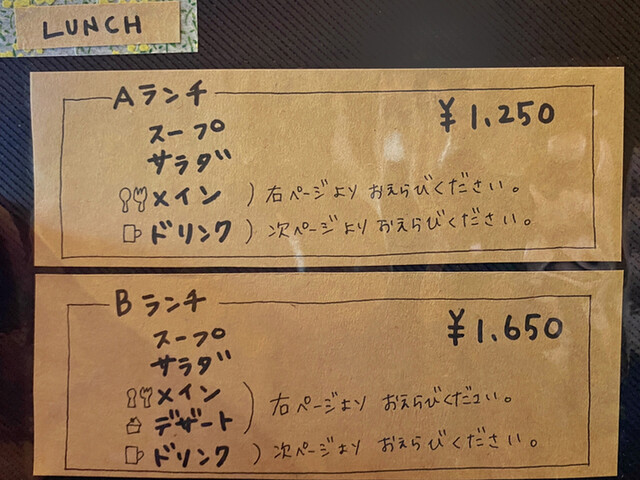 LUNCH
Aランチ
¥1.250
スープ
サラダ
メイン ) 右ページより おえらびください。
ドリンク ) 次ページより おえらびください。
Bランチ
¥1.650
スープ
サラダ
メイン
デザート ) 右ページより おえらびください。
ドリンク ) 次ページより おえらびください。